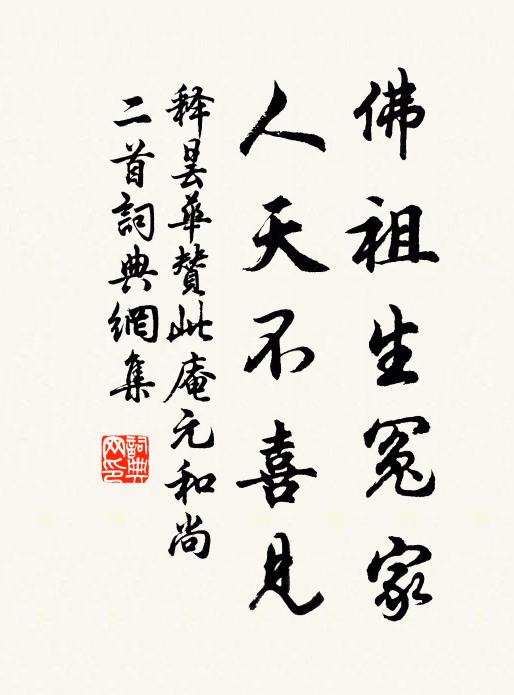 佛祖生冤家
人天不喜見
釋曇華贊此庵元和尚
二首詞典網集
詞典網印